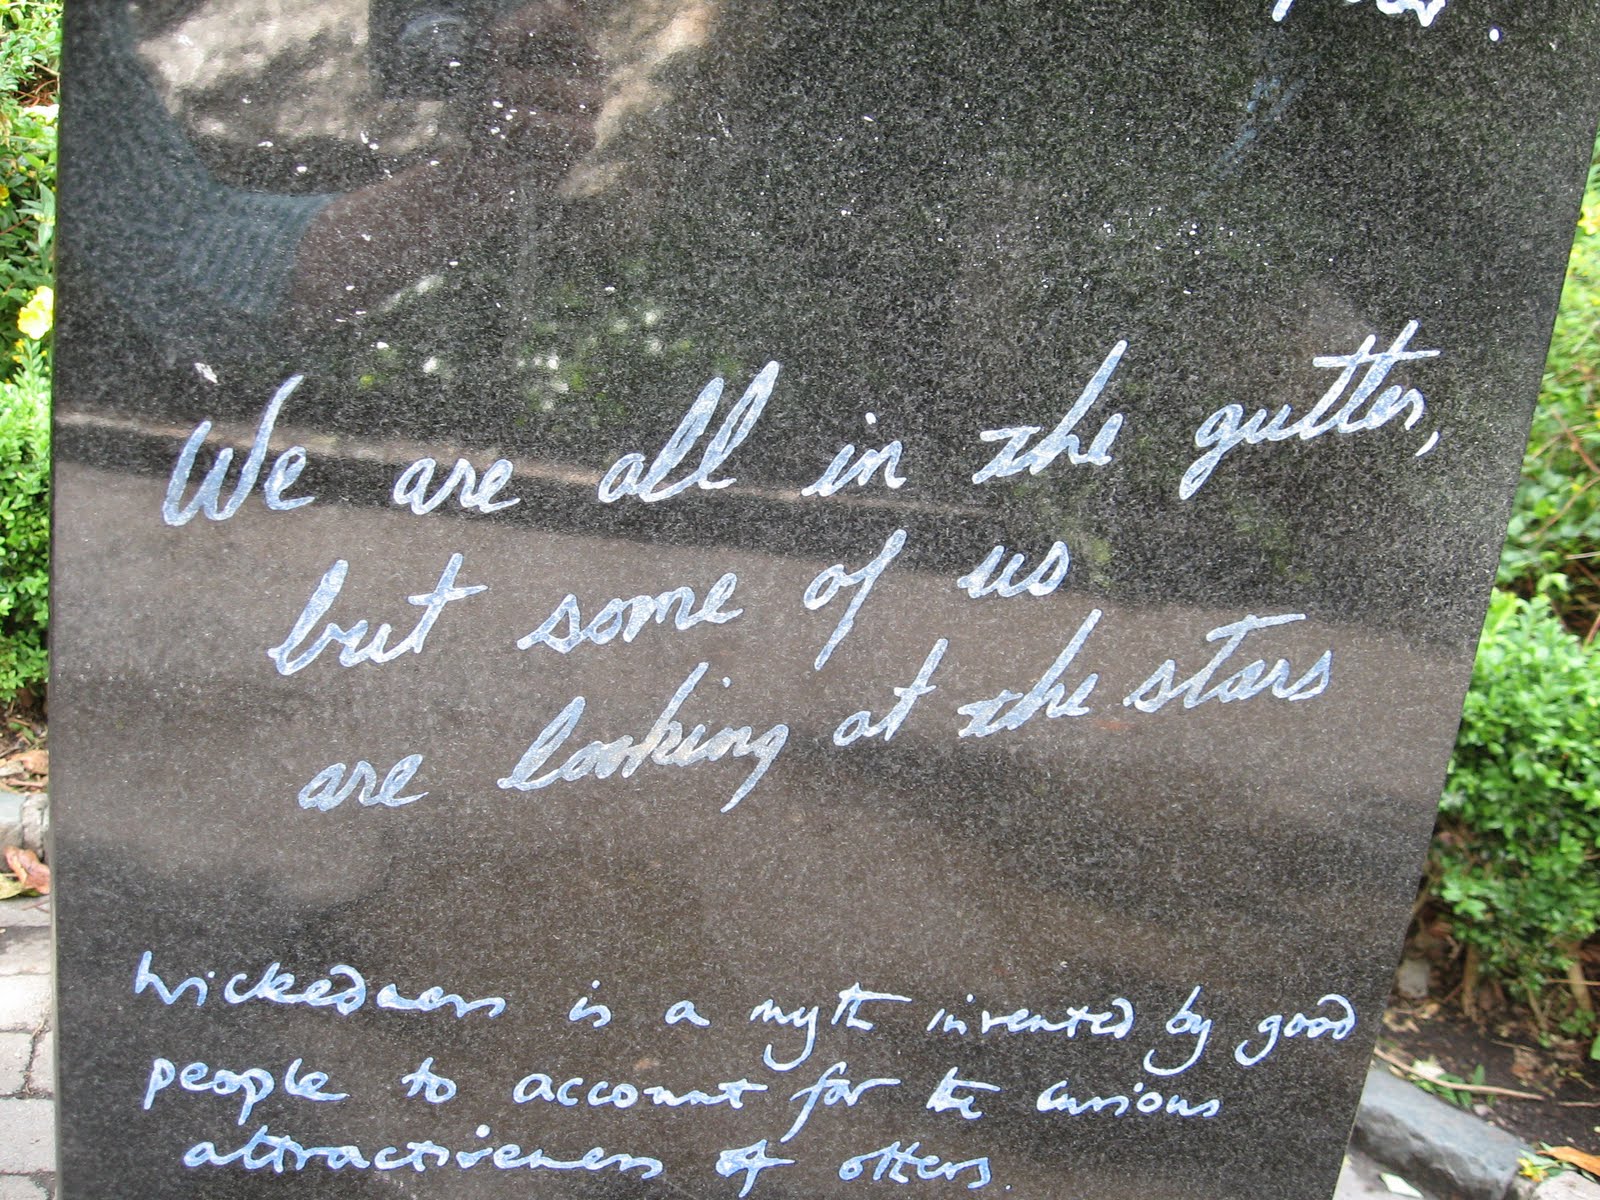 We are all in the gutter,
but some of us
are looking at the stars
Wickedness is a myth invented by good
people to account for the curious
attractiveness of others.